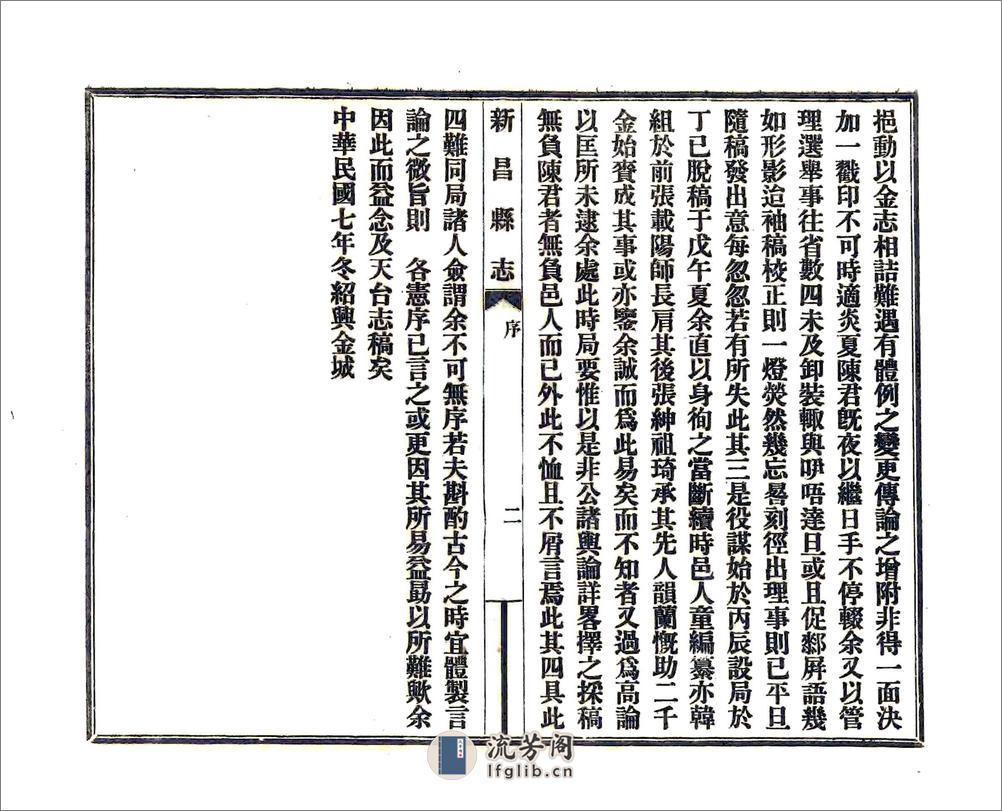 挹動以金志相詰難遇有體例之變更傳論之增附非得一面決
加一戳印不可時適炎夏陳君旣夜以繼日手不停輟余又以管
理選舉事往省數四未及卸裝輙與咿唔達旦或且促鄰屛語幾
如形影迨袖稿校正則一燈熒然幾忘晷刻徑出理事則已平旦
隨稿發出意每忽忽若有所失此其三是役謀始於丙辰設局於
丁巳脫稿于戊午夏余直以身徇之當斷續時邑人童編纂亦韓
組於前張載陽師長肩其後張紳祖琦承其先人韻蘭慨助二千
金始賚成其事或亦鑒余誠而爲此易矣而不知者又過爲高論
以匡所未逮余處此時局要惟以是非公諸輿論詳畧擇之採稿
無負陳君者無負邑人而已外此不恤且不屑言焉此其四具此
新昌縣志
序
二
四難同局諸人僉謂余不可無序若夫斟酌古今之時宜體製言
論之微旨則　各憲序已言之或更因其所易益勗以所難歟余
因此而益念及天台志稿矣
中華民國七年冬紹興金城
流芳阁
lfglib.cn